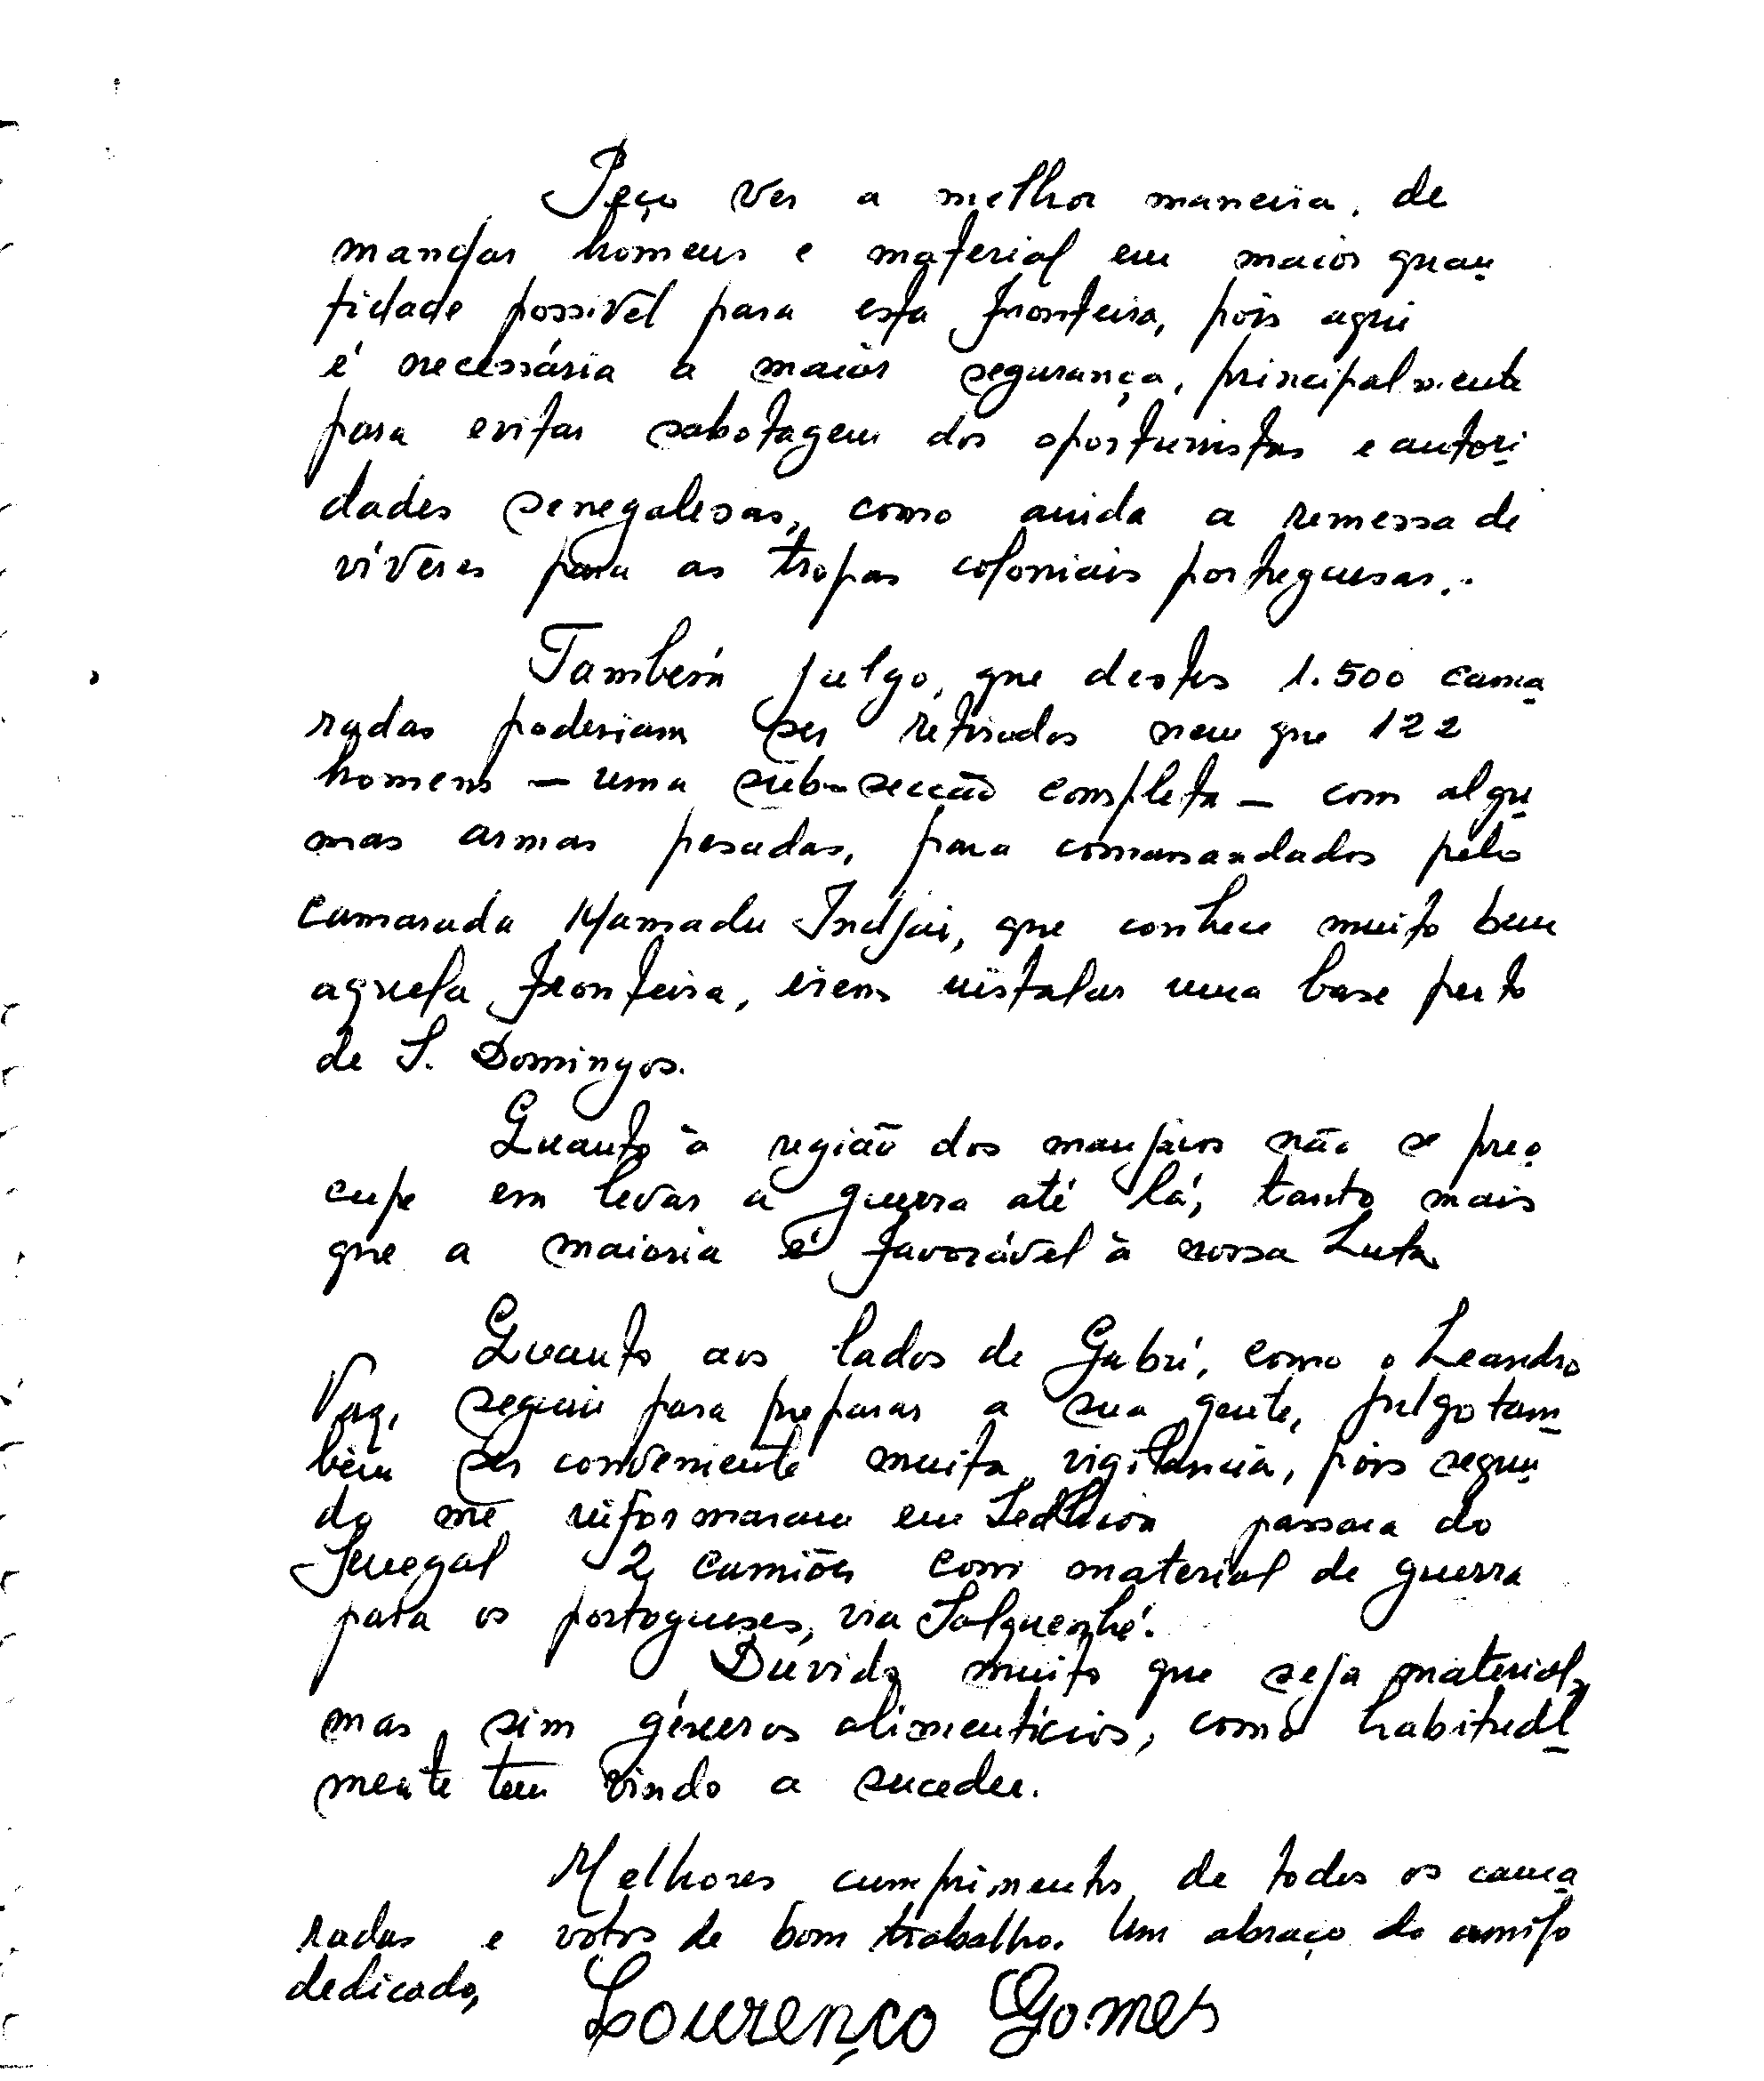 Peço ver a melhor maneira, de
mandar homens e material em maior quan
tidade possivel para esta fronteira, pois aqui
é necessária a maior segurança, principalmente
para evitar sabotagem dos oportunistas e autori
dades senegalesas, como ainda a remessa de
víveres para as tropas coloniais portuguesas.
Também julgo, que destes 1.500 cama
radas poderiam ser retirados nem que 122
homens - uma sub-secção completa - com algu
mas armas pesadas, para comandados pelo
camarada Mamadu Indjai, que conhece muito bem
aquela fronteira, irem instalar uma base perto
de S. Domingos.
Quanto à região dos manjacos não se preo
cupe em levar a guerra até lá, tanto mais
que a maioria é favorável à nossa Luta
Quanto aos lados de Gabú, como o Leandro
Vaz, seguiu para preparar a sua gente, julgo tam
bém ser conveniente muita vigilancia, pois segun
do me informaram em Sedhiou passara do
Senegal 2 camiões com material de guerra
para os portogueses, via Salquenhé.
Duvido muito que seja material,
mas sim géneros alimentícios, como habitual
mente tem vindo a suceder.
Melhores cumprimentos de todos os cama
radas e votos de bom trabalho. Um abraço do amigo
dedicado,
Lourenço Gomes